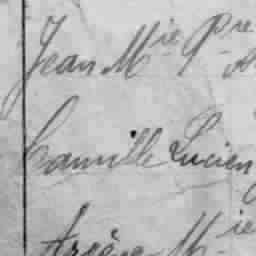 Jean Mie Pre
Camille Lucien
Arsène Mie